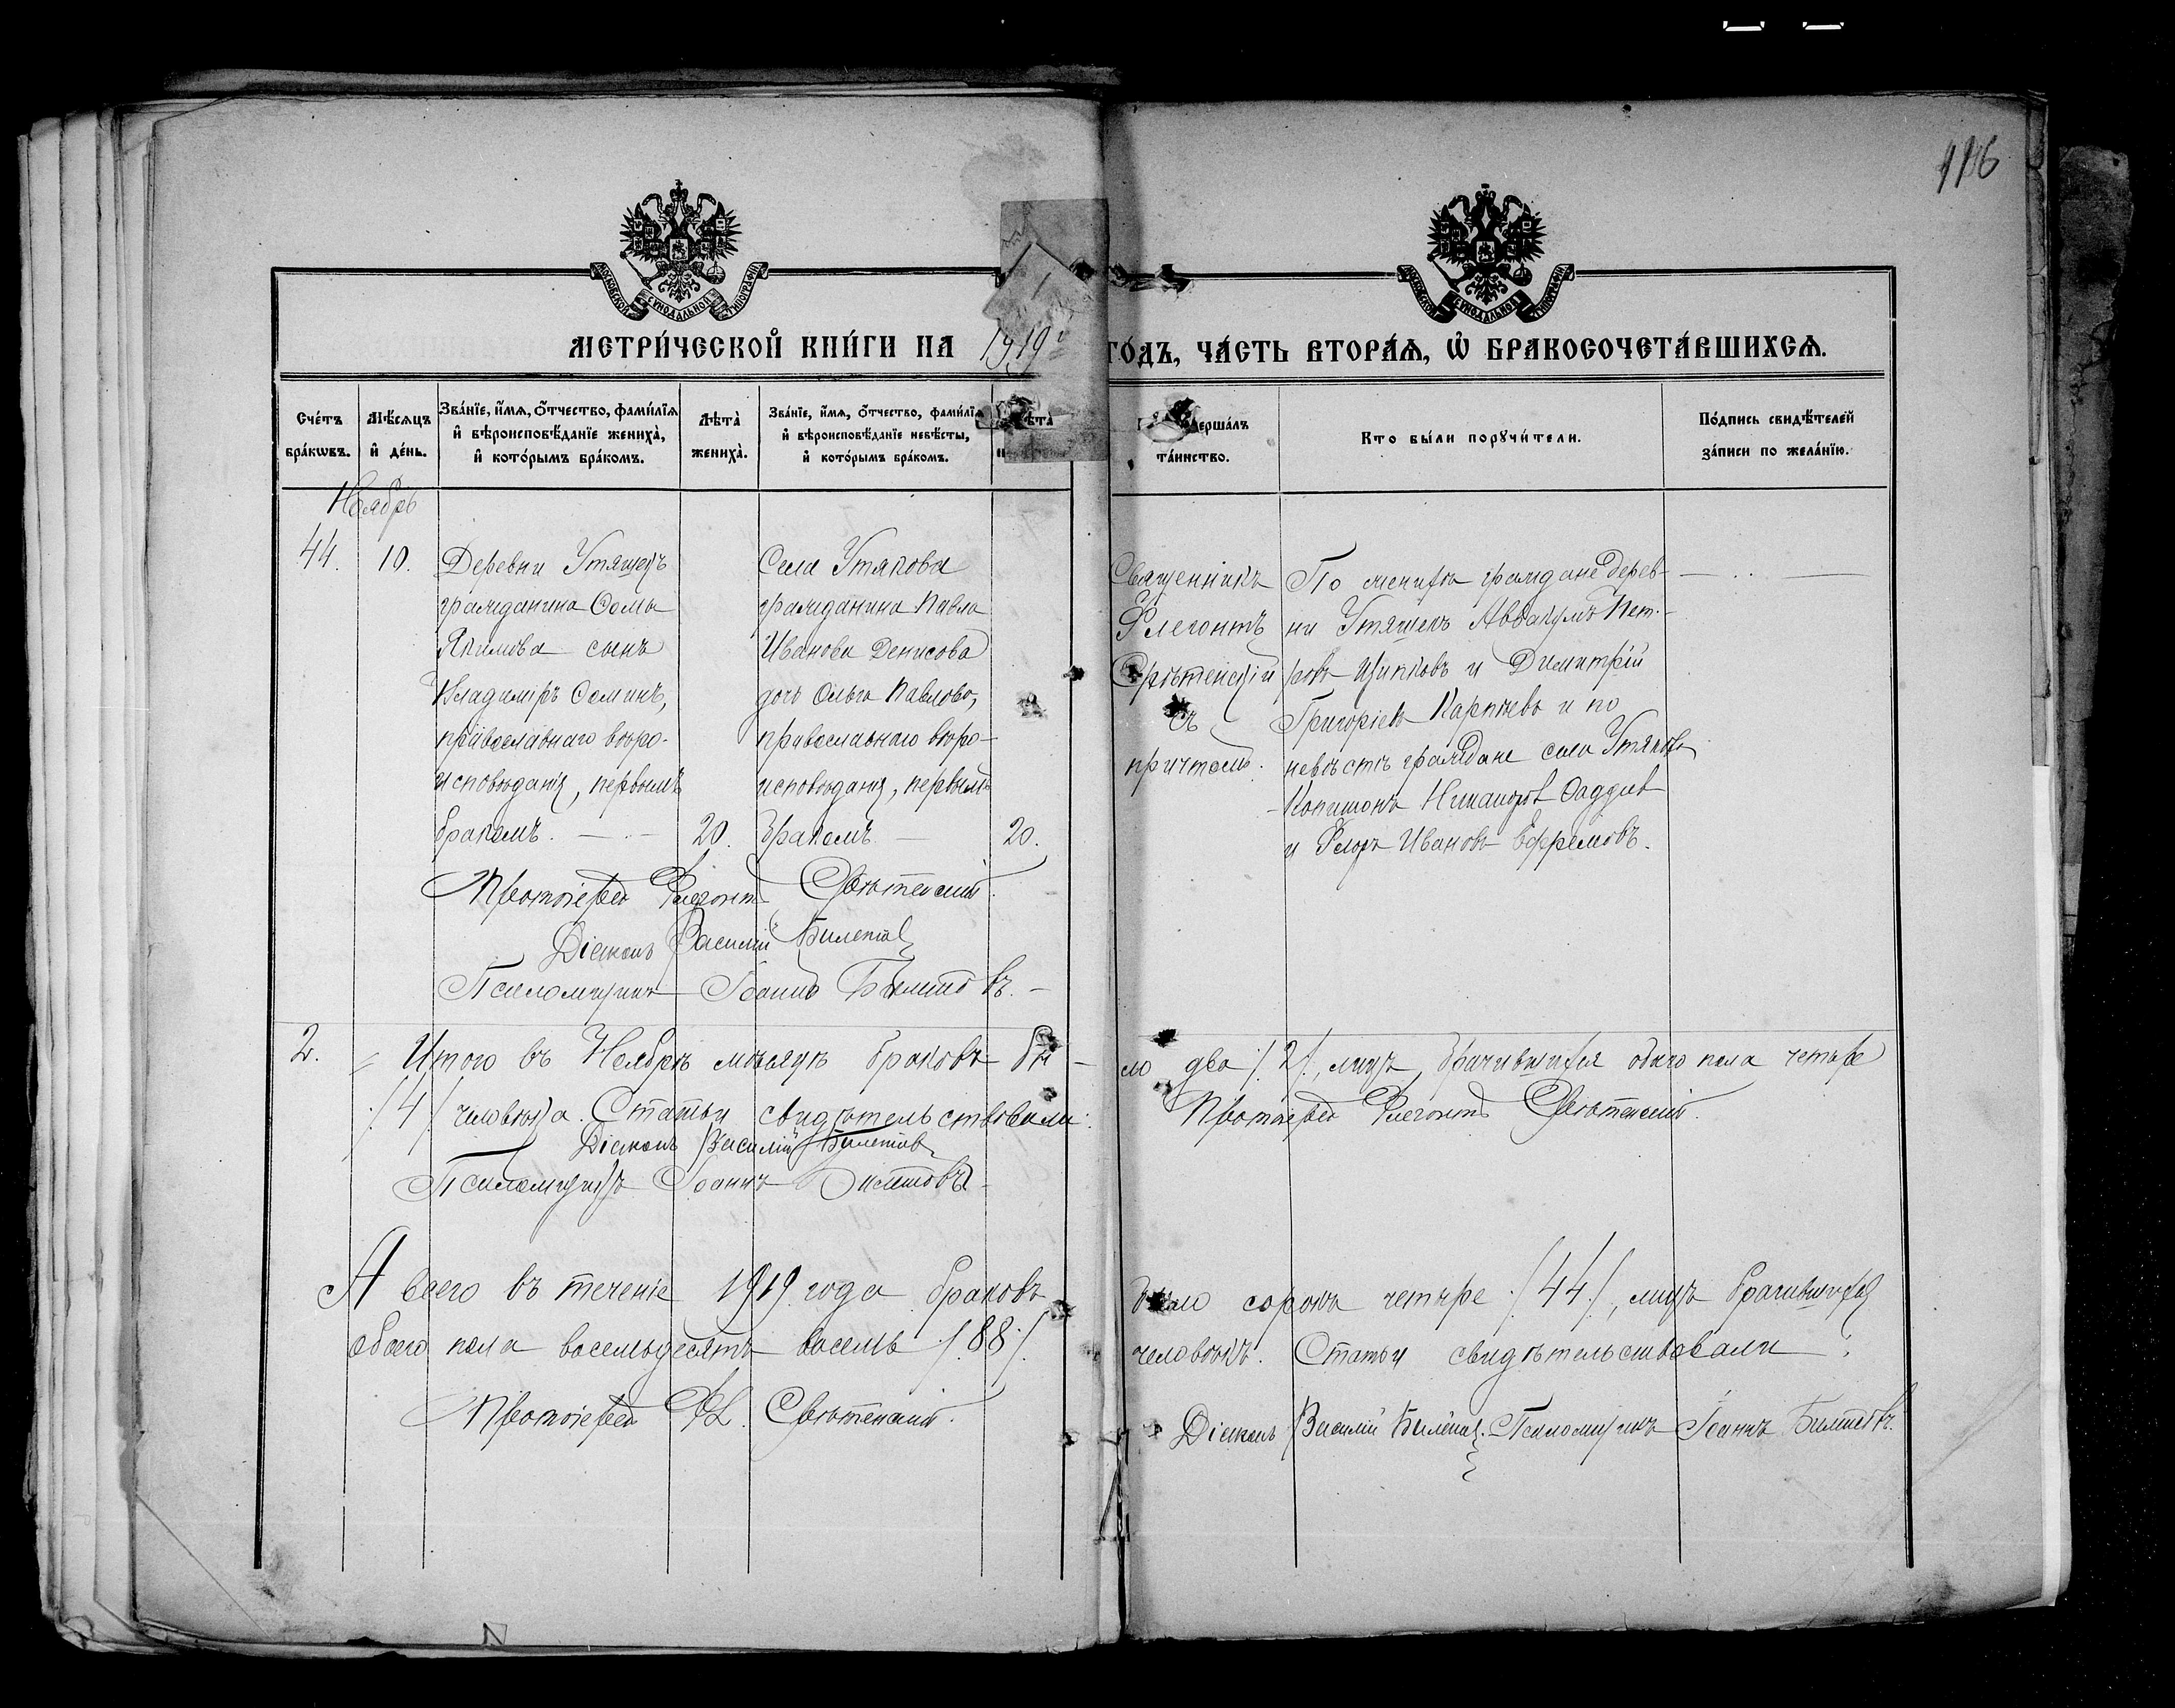 116
МОСКОВСКОЙ СѴНОДАЛЬНОЙ ТИПОГРАФІИ
МОСКОВСКОЙ СѴНОДАЛЬНОЙ ТИПОГРАФІИ
МЕТРИ́ЧЕСКОЙ КНИ́ГИ НА 1919 ГО́ДЪ, ЧА́СТЬ ВТОРА́Ѧ, Ѽ БРАКОСОЧЕТА́ВШИХСѦ.
Сче́тъ бра́кѡвъ.
Мѣ́сѧцъ и҆ де́нь.
Зва́нїе, и҆́мѧ, ѻ҆́тчество, фами́лїѧ
и҆ вѣроисповѣ́данїе жениха̀,
и҆ кото́рымъ бра́комъ.
Лѣта̀ жениха̀.
Зва́нїе, и҆́мѧ, ѻ҆́тчество, фами́лїѧ
и҆ вѣроисповѣ́данїе невѣ́сты,
и҆ кото́рымъ бра́комъ.
та́инство.
Кто бы́ли порꙋчи́тели.
По́дпись свидѣ́телей
за́писи по жела́нїю.
Ноябрь
44.
10.
Деревни Утяшекъ
гражданина Сомы
Якимова сынъ
Владиміръ Соминъ,
православнаго вѣро-
исповѣданія, первымъ
бракомъ.
20.
Села Утякова
гражданина Павла
Иванова Денисова
дочь Ольга Павлова,
православнаго вѣро-
исповѣданія, первымъ
бракомъ
20.
Священникъ
Флегонтъ
Срѣтенскій
съ
причтомъ.
По женихѣ граждане дерев-
ни Утяшекъ Аввакумъ Пет-
ровъ Щипковъ и Димитрій
Григоріевъ Карпѣевъ и по
невѣстѣ граждане села Утякова
Никаноровъ Фаддѣевъ
и Флоръ Ивановъ Ефремовъ.
Протоіерей Флегонтъ Срѣтенскій.
Діаконъ Василій Билетов
Псаломщикъ Іоаннъ Билетовъ.
2.
Итого въ Ноябрѣ мѣсяцѣ браковъ бы-
ло два /2/, лицъ брачившихся обоего пола четыре
/4/ человѣка. Статьи свидѣтельствовали:
Протоіерей Флегонтъ Срѣтенскій.
Діаконъ Василій Билетов
Псаломщикъ Іоаннъ Билетовъ
А всего въ теченіе 1919 года браковъ
было сорокъ четыре /44/, лицъ брачившихся
обоего пола восемьдесятъ восемь /88/.
человѣкъ. Статьи свидѣтельствовали:
Протоіерей Фл. Срѣтенскій.
Діаконъ Василій Билетов. Псаломщикъ Іоаннъ Билетовъ.